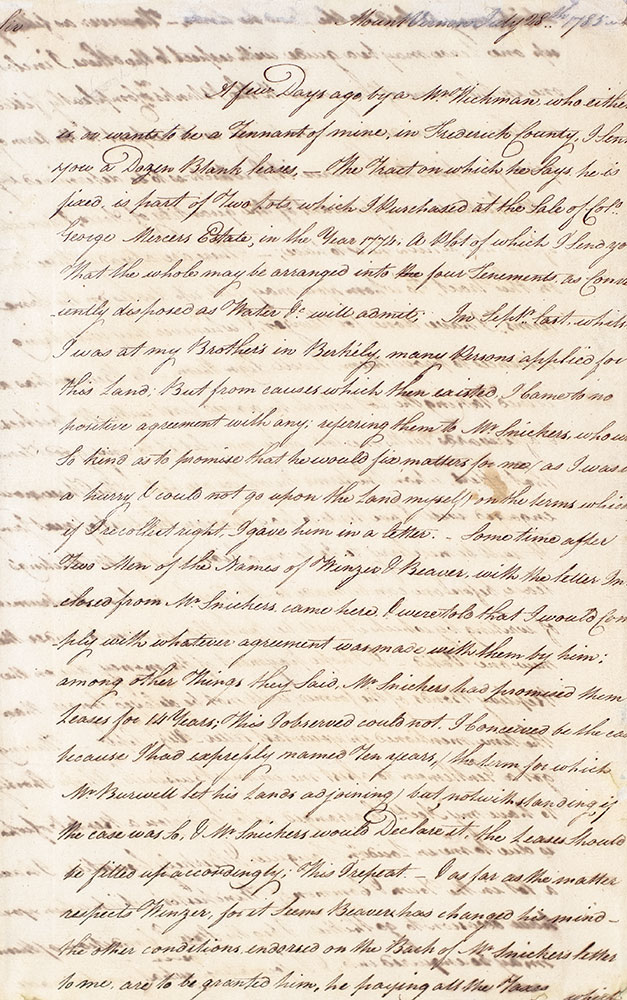 Sir Mount Vernon July 28th 1785
A few Days ago, by a Mr Wickman, who either
is, or wants to be a Tennant of mine, in Frederick County, I Sent
you a Dozen Blank leases, — The Tract on which he Says he is
fixed, is part of Two Lots which I Purchased at the Sale of Colo.
George Mercers Estate, in the Year 1774. A Plot of which I Send you
That the whole may be arranged into the four Tenements, as Conv
iently disposed as Water &c. will admit; In Septr. last, whils
I was at my Brother's in Berkely, many Persons applied for
this Land; But from causes which then existed, I Came to no
positive agreement with any; referring them to Mr Snickers, who w
So kind as to promise that he would fix matters for me (as I was i
a hurry & could not go upon the Land myself) on the terms which
if I recollect right, I gave him in a letter. — Some time after
Two Men of the Names of Winzer & Beaver, with the letter In
closed from Mr Snickers, came here & were told that I would Com
ply with whatever agreement was made with them by him;
among other Things they Said, Mr Snickers had promised them
Leases for 14 Years; This I observed could not, I Conceived be the ca
because I had expressly named Ten years, (the term for which
Mr Burwell let his Lands adjoining) but, notwithstanding, if
the case was So, & Mr Snickers would Declare it, the Leases should
be filled up accordingly; This I repeat — & as far as the matter
respects Winzer, for it Seems Beavers has changed his mind —
the other conditions, endorsed on the Back of Mr Snickers letter
to me, are to be granted him, he paying all the Taxes
which